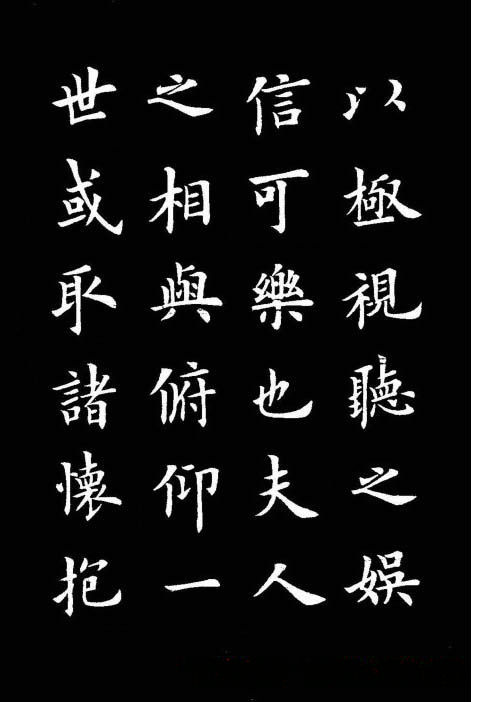 以極視聽之娛
信可樂也夫人
之相與俯仰一
世或取諸懷抱